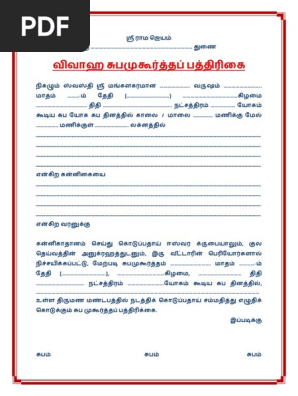 PDF
ஸ்ரீ ராம ஜெயம்
........................................ துணை
விவாஹ சுபமுகூர்த்தப் பத்திரிகை
நிகழும் ஸ்வஸ்தி ஸ்ரீ மங்களகரமான ............... வருஷம் ...............
மாதம் .......ம் தேதி (...............) ...............................கிழமை
...................... திதி ......................... நட்சத்திரம் ............ யோகம்
கூடிய சுப யோக சுப தினத்தில் காலை / மாலை ......... மணிக்கு மேல்
.......... மணிக்குள் ............... லக்னத்தில்
என்கிற கன்னிகையை
என்கிற வரனுக்கு
கன்னிகாதானம் செய்து கொடுப்பதாய் ஈஸ்வர க்ருபையாலும், குல
தெய்வத்தின் அனுக்ரஹத்துடனும், இரு வீட்டாரின் பெரியோர்களால்
நிச்சயிக்கப்பட்டு, மேற்படி சுபமுகூர்த்தம் .................. மாதம் .........ம்
தேதி (...............), .....................கிழமை, ..................... திதி
................ நட்சத்திரம் ................யோகம் கூடிய சுப தினத்தில்,
உள்ள திருமண மண்டபத்தில் நடத்திக் கொடுப்பதாய் சம்மதித்து எழுதிக்
கொடுக்கும் சுப முகூர்த்தப் பத்திரிகை.
இப்படிக்கு
சுபம் சுபம் சுபம்